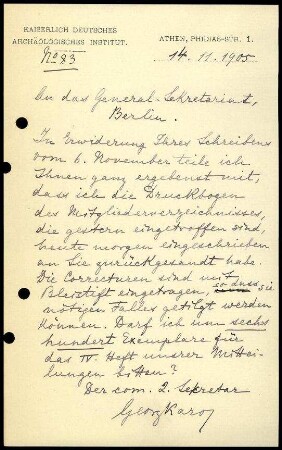 KAISERLICH DEUTSCHES
ARCHÄOLOGISCHES INSTITUT.
No 83
ATHEN, PHIDIAS-STR. 1.
14. 11. 1905
An das General-Sekretariat,
Berlin.
In Erwiderung Ihres Schreibens
vom 6. November teile ich
Ihnen ganz ergebenst mit,
dass ich die Druckbogen
des Mitgliederverzeichnisses,
die gestern eingetroffen sind,
heute morgen eingeschrieben
an Sie zurückgesandt habe.
Die Correcturen sind mit
Bleistift eingetragen, so dass sie
nötigen Falles getilgt werden
können. Darf ich um sechs
hundert Exemplare für
das IV. Heft unserer Mittei-
lungen bitten?
Der com. 2. Sekretar
Georg Karo